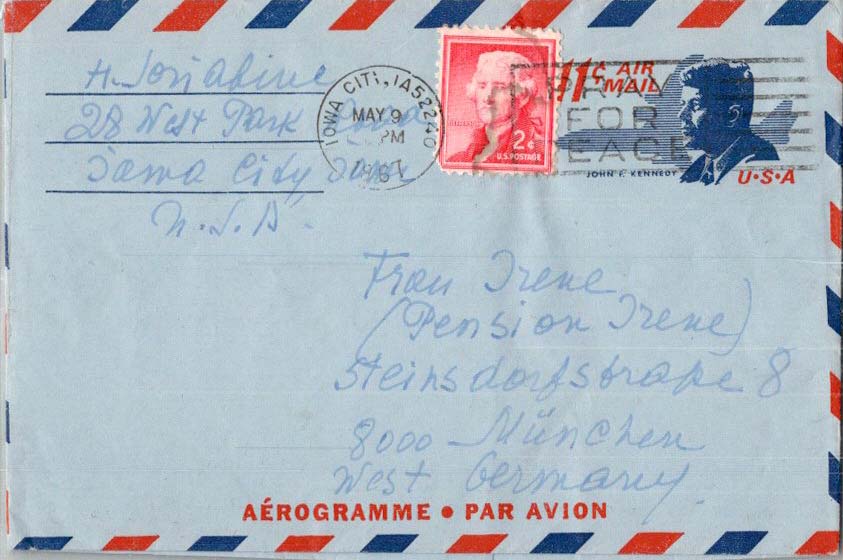 28 West Park Road
Iowa City Iowa
U.S.A.
IOWA CITY, IA 52240
MAY 9
PM
2¢
U.S. POSTAGE
PRAY
FOR
PEACE
11¢ AIR
MAIL
JOHN F. KENNEDY
U·S·A
Frau Irene
(Pension Irene)
Steinsdorfstraße 8
8000 München
West Germany
AÉROGRAMME • PAR AVION